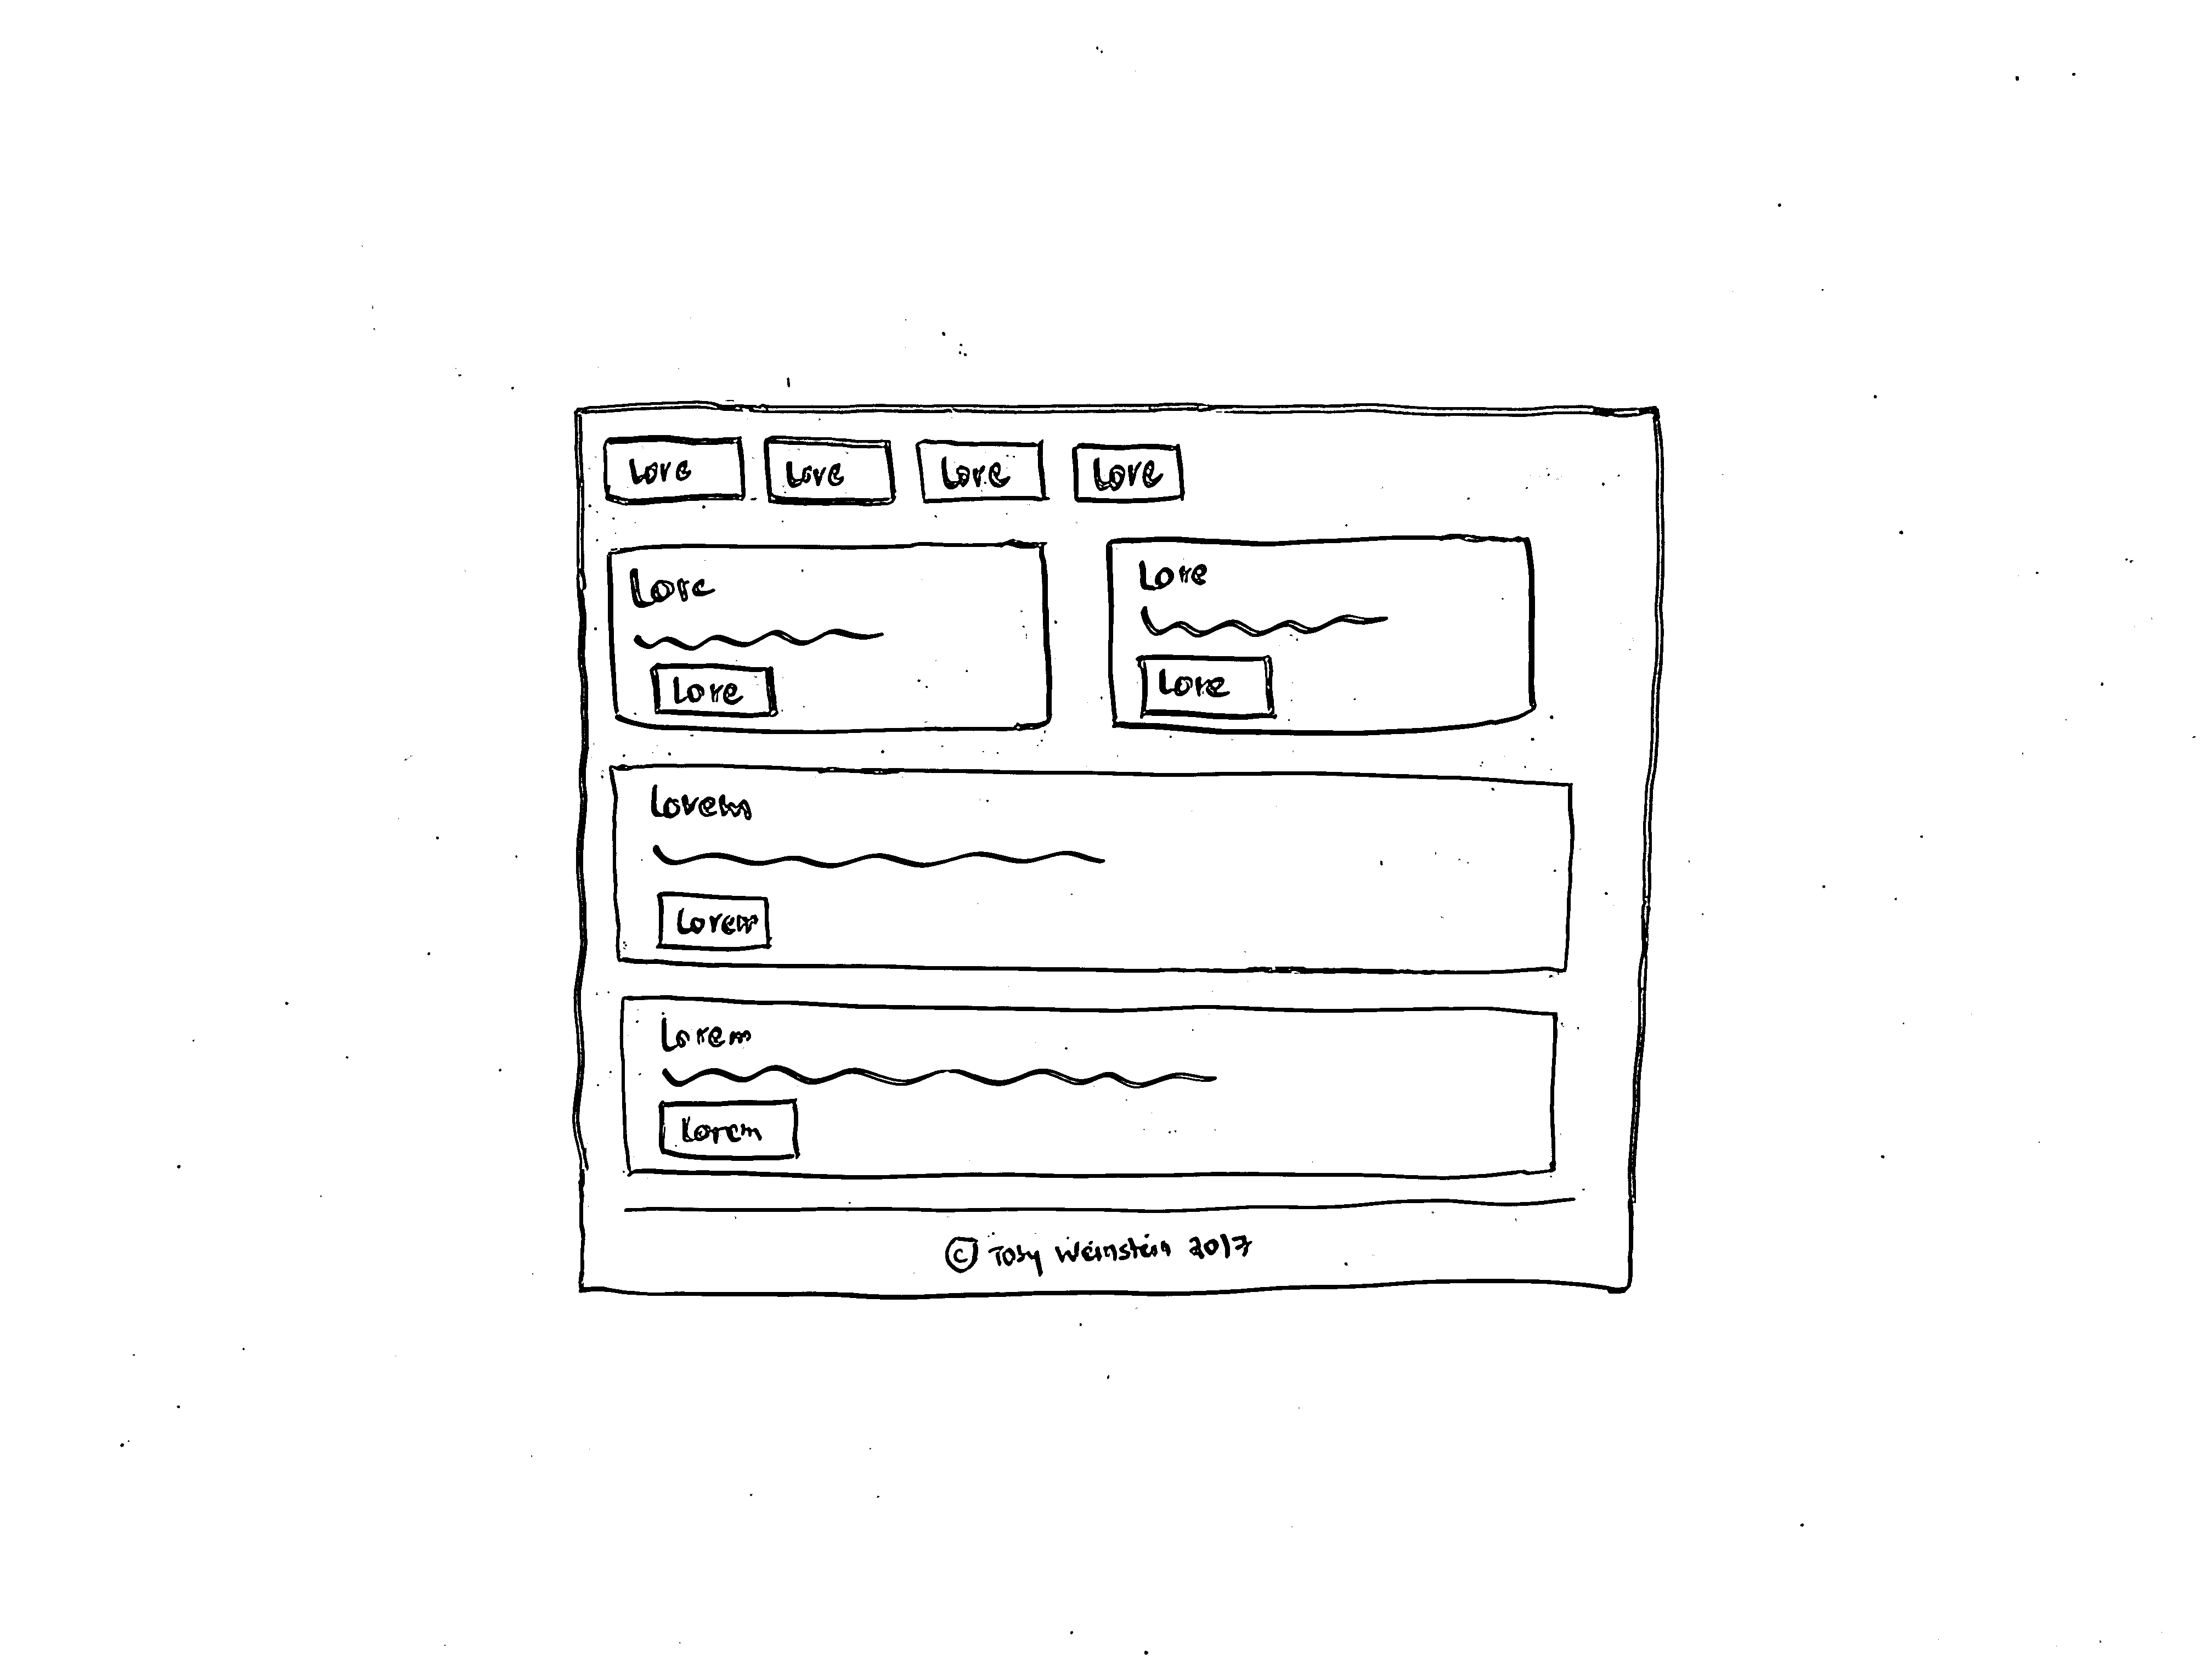 Lore Lore Lore Lore
Lore
Lore
Lore
Lore
Lorem
Lorem
Lorem
Lorem
© Toby Weinstein 2017